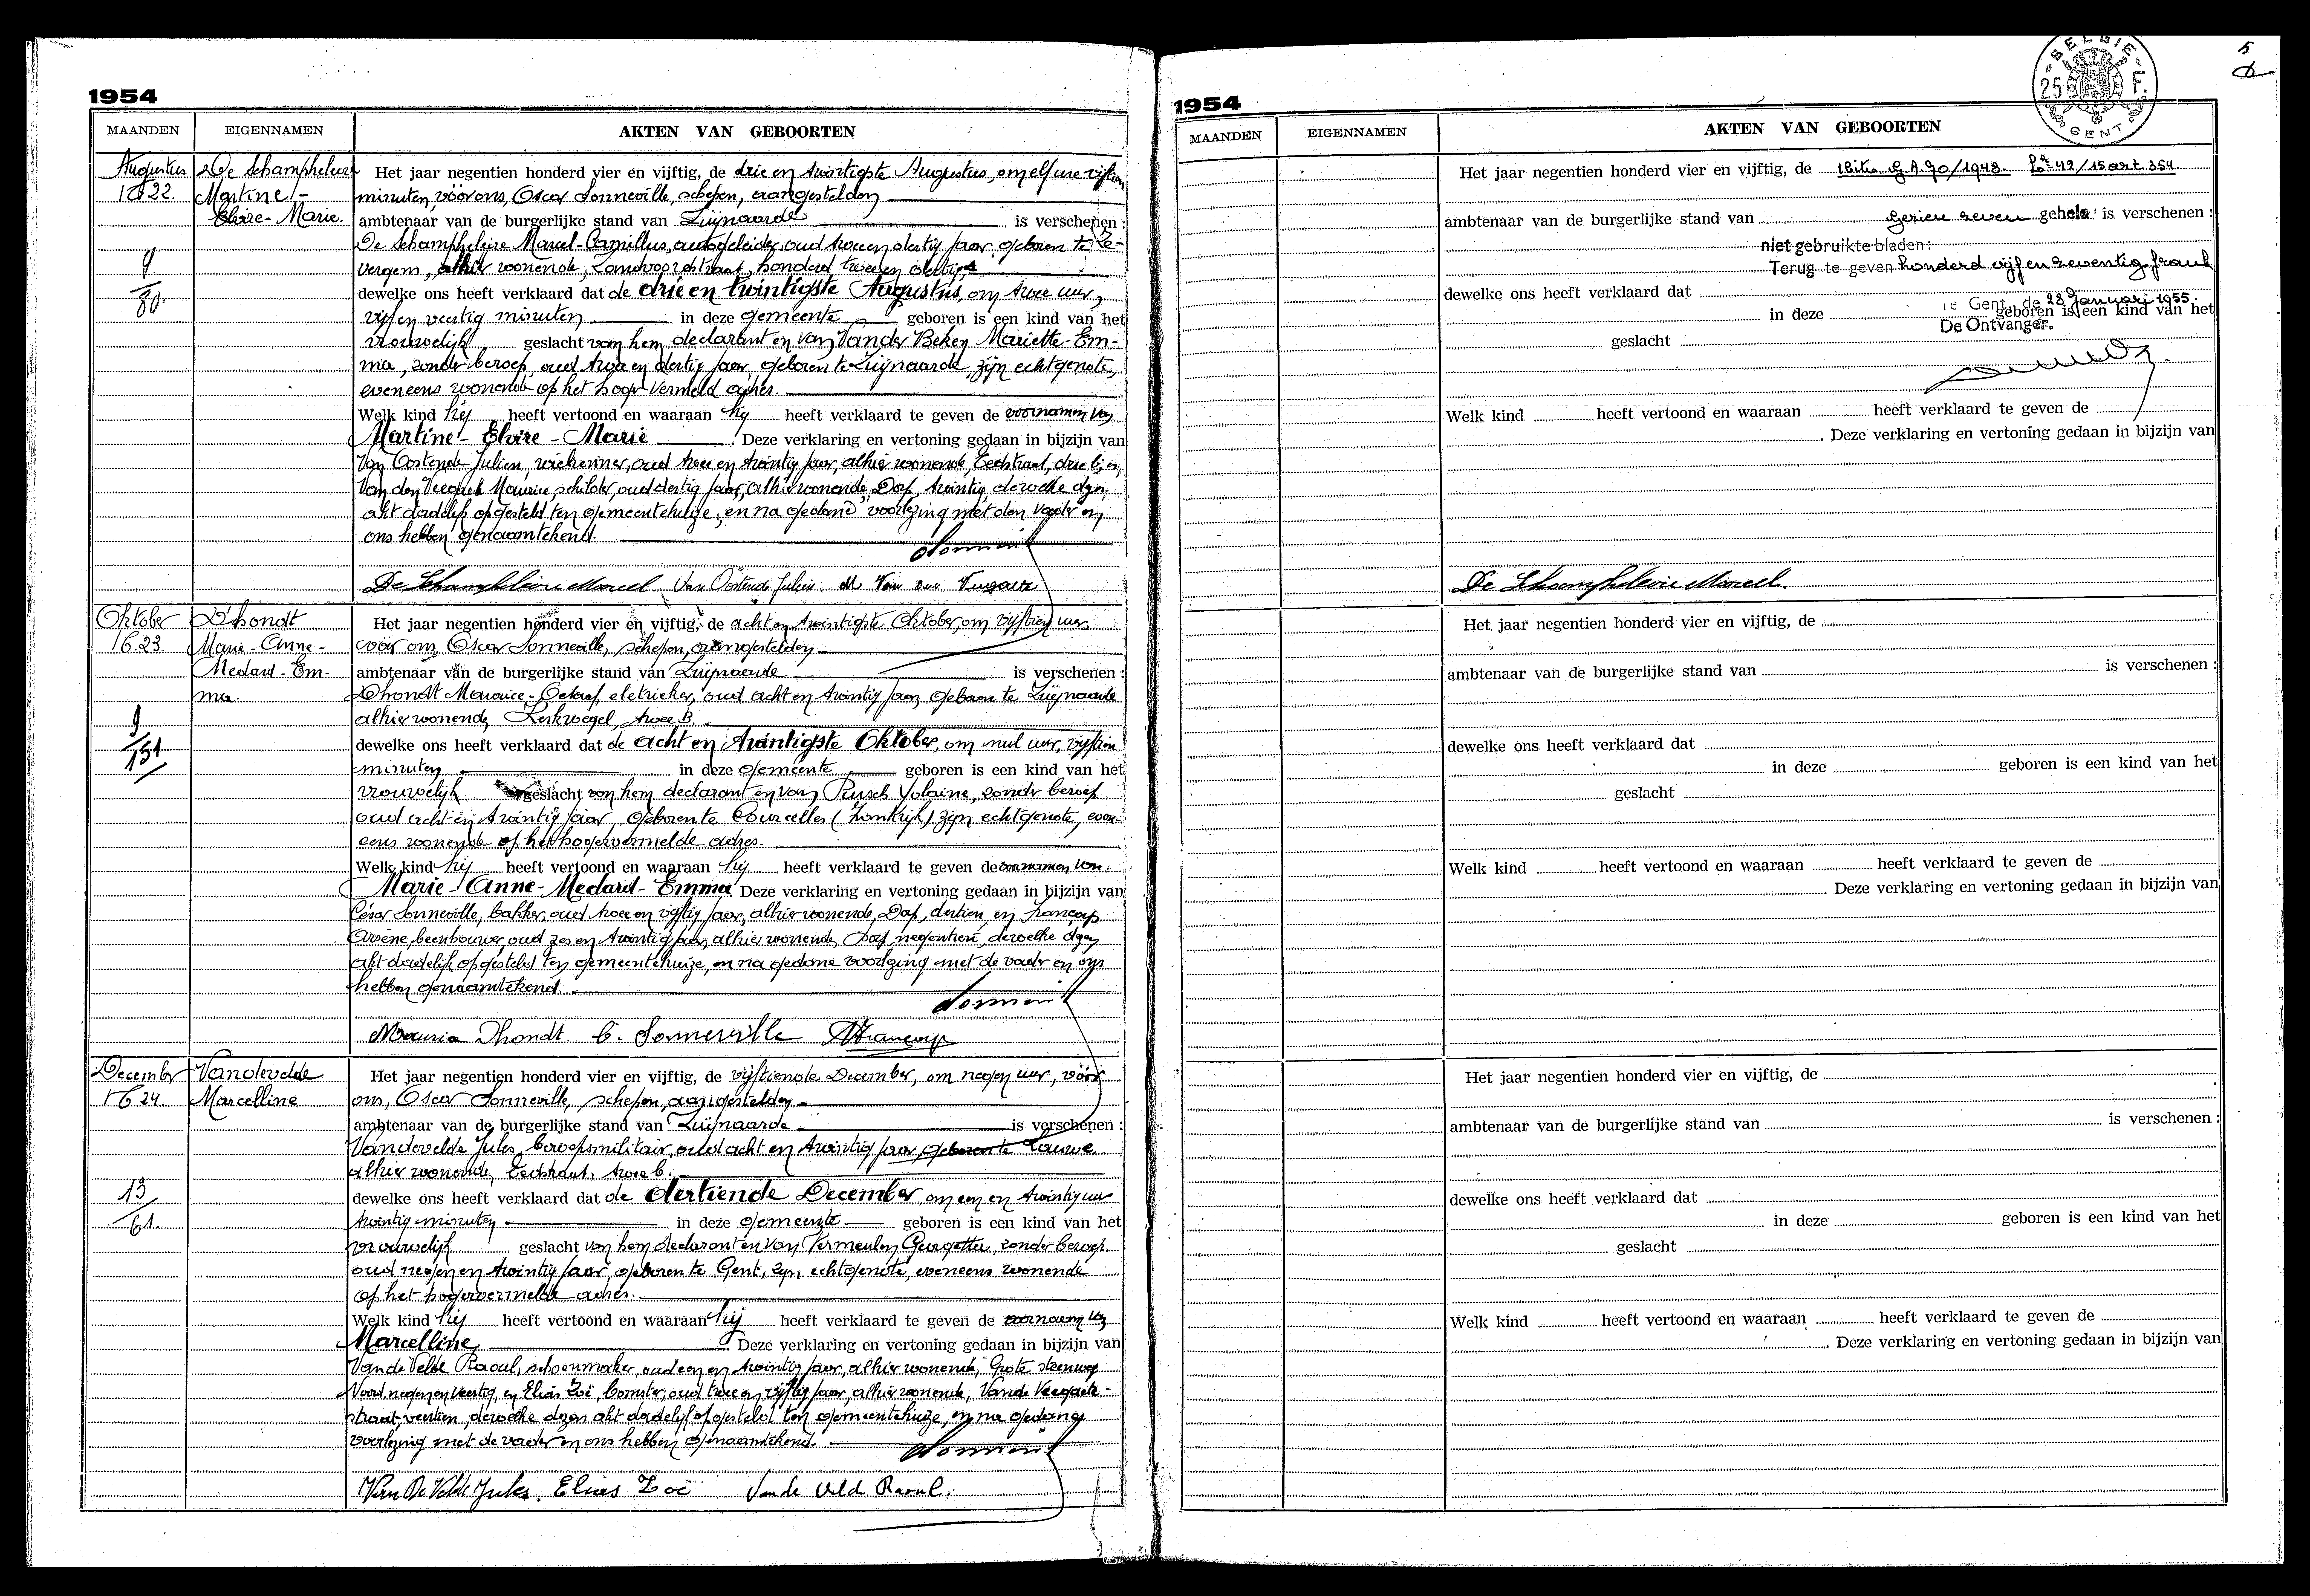 1954
MAANDEN EIGENNAMEN AKTEN VAN GEBOORTEN
Augustus De Schampheleire Het jaar negentien honderd vier en vijftig, de drie en twintigste Augustus, om elf ure vijftien
Nr 22. Martine- minuten, vóór ons, Oscar Sonneville, schepen, aangestelden
Elvire-Marie. ambtenaar van de burgerlijke stand van Zwijnaarde is verschenen :
De Schampheleire Marcel-Camillus, autogeleider, oud twee en dertig jaar, geboren te Ze-
9 vergem, alhier wonende, honderd twee en dertig
80. dewelke ons heeft verklaard dat de drie en twintigste Augustus, om twee uur,
vijf en veertig minuten in deze gemeente geboren is een kind van het
vrouwelijk geslacht van hem declarant en van Van der Beken Mariette-Em-
ma, zonder beroep, oud twee en dertig jaar, geboren te Zwijnaarde, zijn echtgenote,
eveneens wonende op het hoger vermeld adres.
Welk kind hij heeft vertoond en waaraan hij heeft verklaard te geven de voornamen van
Martine - Elvire - Marie Deze verklaring en vertoning gedaan in bijzijn van
Van Oostende Julien, oud twee en twintig jaar, alhier wonende, drie b, en
Maurice, schilder, oud dertig jaar, alhier wonende, Dorp, twintig, dewelke dezen
akt dadelijk opgesteld ten gemeentehuize, en na gedane voorlezing met den vader en
ons hebben genaamtekend.
De Schampheleire Marcel. Van Oostende Julien M Van den
Oktober D'hondt Het jaar negentien honderd vier en vijftig, de acht en twintigste Oktober, om vijftien uur,
Nr 23. Marie-Anne- vóór ons, Oscar Sonneville, schepen, aangestelden
Medard-Em- ambtenaar van de burgerlijke stand van Zwijnaarde is verschenen :
ma. Dhondt Maurice-Octaaf, oud acht en twintig jaar, geboren te Zwijnaarde
9 alhier wonende, Kerkwegel, twee B.
151 dewelke ons heeft verklaard dat de acht en twintigste Oktober, om nul uur, vijftien
minuten in deze gemeente geboren is een kind van het
vrouwelijk geslacht van hem declarant en van Yolaine, zonder beroep
oud acht en twintig jaar, geboren te Courcelles (Frankrijk) zijn echtgenote, even-
eens wonende op het hogervermelde adres.
Welk kind hij heeft vertoond en waaraan hij heeft verklaard te geven de voornamen van
Marie-Anne-Medard-Emma Deze verklaring en vertoning gedaan in bijzijn van
César Sonneville, bakker, oud twee en vijftig jaar, alhier wonende, Dorp, dertien, en
Arsène, beenhouwer, oud zes en twintig jaar, alhier wonende, Dorp, negentien, dewelke dezen
akt dadelijk opgesteld ten gemeentehuize, en na gedane voorlezing met de vader en ons
hebben genaamtekend.
Maurice Dhondt. C. Sonneville
December Vandevelde Het jaar negentien honderd vier en vijftig, de vijftiende December, om negen uur, vóór
Nr 24. Marcelline ons, Oscar Sonneville, schepen, aangestelden
ambtenaar van de burgerlijke stand van Zwijnaarde is verschenen :
Vandevelde Jules, beroepsmilitair, oud acht en twintig jaar, geboren te Lauwe,
alhier wonende, twee b.
13 dewelke ons heeft verklaard dat de dertiende December, om een en twintig uur
61. twintig minuten in deze gemeente geboren is een kind van het
vrouwelijk geslacht van hem declarant en van Vermeulen Georgette, zonder beroep
oud negen en twintig jaar, geboren te Gent, zijn echtgenote, eveneens wonende
op het hogervermelde adres.
Welk kind hij heeft vertoond en waaraan hij heeft verklaard te geven de voornaam van
Marcelline Deze verklaring en vertoning gedaan in bijzijn van
Van de Velde Raoul, schoenmaker, oud een en twintig jaar, alhier wonende, Grote steenweg
Noord, negen en veertig, en Elias Zoë, oud twee en vijftig jaar, alhier wonende,
straat, veertien, dewelke dezen akt dadelijk opgesteld ten gemeentehuize, en na gedane
voorlezing met de vader en ons hebben genaamtekend.
Van De Velde Jules. Elias Zoë Van de Velde Raoul.
5
BELGIE
25 F.
GENT
1954
MAANDEN EIGENNAMEN AKTEN VAN GEBOORTEN
Het jaar negentien honderd vier en vijftig, de G.A. 70/1948. 42/15 art. 354
ambtenaar van de burgerlijke stand van Gezien zeven gehele is verschenen :
niet gebruikte bladen:
Terug te geven honderd vijf en zeventig frank
dewelke ons heeft verklaard dat
Te Gent, de 28 Januari 1955.
in deze geboren is een kind van het
De Ontvanger.
geslacht
Welk kind heeft vertoond en waaraan heeft verklaard te geven de
Deze verklaring en vertoning gedaan in bijzijn van
De Schampheleire Marcel.
Het jaar negentien honderd vier en vijftig, de
ambtenaar van de burgerlijke stand van is verschenen :
dewelke ons heeft verklaard dat
in deze geboren is een kind van het
geslacht
Welk kind heeft vertoond en waaraan heeft verklaard te geven de
Deze verklaring en vertoning gedaan in bijzijn van
Het jaar negentien honderd vier en vijftig, de
ambtenaar van de burgerlijke stand van is verschenen :
dewelke ons heeft verklaard dat
in deze geboren is een kind van het
geslacht
Welk kind heeft vertoond en waaraan heeft verklaard te geven de
Deze verklaring en vertoning gedaan in bijzijn van